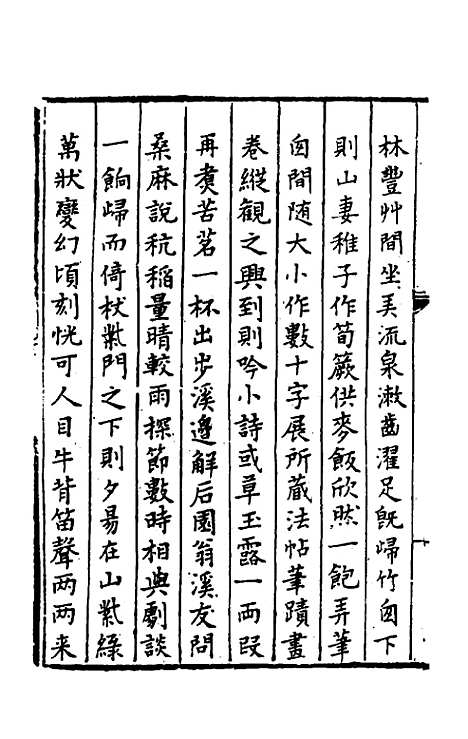 林豐艸間坐弄流泉漱齒濯足旣歸竹囪下
則山妻稚子作筍蕨供麥飯欣然一飽弄筆
囪間随大小作數十字展所藏法帖筆蹟畫
卷縱觀之興到則吟小詩或草玉露一兩段
再烹苦茗一杯出步溪邊解后園翁溪友問
桑麻說秔稻量晴較雨探節數時相與劇談
一餉歸而倚杖柴門之下則夕昜在山紫綠
萬狀變幻頃刻恍可人目牛背笛聲兩兩来